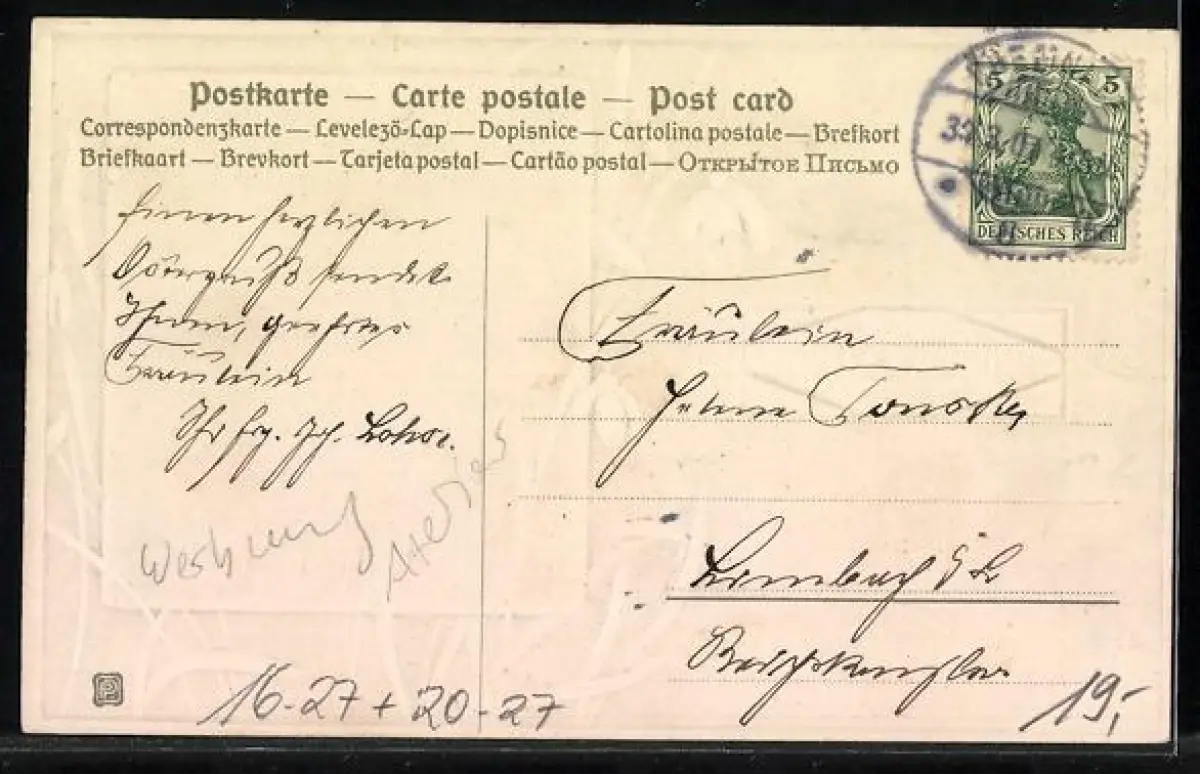 Postkarte — Carte postale — Post card
Correspondenzkarte — Levelező-Lap — Dopisnice — Cartolina postale — Brefkort
Briefkaart — Brevkort — Tarjeta postal — Cartão postal — Открытое Письмо
5 5
DEUTSCHES REICH
Einen herzlichen
Ostergruß sendet
Ihnen, geehrtes
Fräulein
Ihr
Fräulein
Limbach
Reichskanzler
16-27 + 20-27
19,-